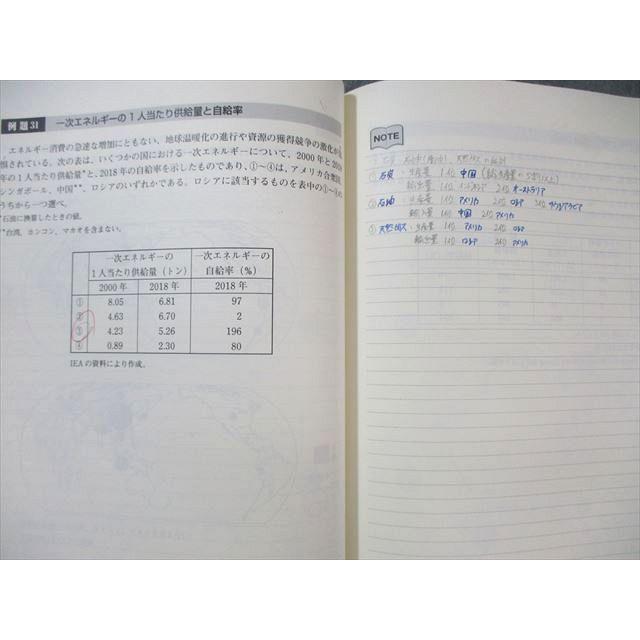 例題31 一次エネルギーの1人当たり供給量と自給率
エネルギー消費の急速な増加にともない、地球温暖化の進行や資源の獲得競争の激化が
惧されている。次の表は、いくつかの国における一次エネルギーについて、2000年と
年の1人当たり供給量*と、2018年の自給率を示したものであり、①〜④は、アメリカ合
シンガポール、中国**、ロシアのいずれかである。ロシアに該当するものを表中の①〜④の
うちから一つ選べ。
*石油に換算したときの値。
**台湾、ホンコン、マカオを含まない。
一次エネルギーの 一次エネルギーの
1人当たり供給量(トン) 自給率(%)
2000年 2018年 2018年
① 8.05 6.81 97
② 4.63 6.70 2
③ 4.23 5.26 196
④ 0.89 2.30 80
IEAの資料により作成。
NOTE
① 石炭・生産量 1位 中国
2位 オーストラリア
② 石油・生産量 1位 アメリカ 2位 ロシア 3位 サウジアラビア
1位 中国 2位 アメリカ
③ 天然ガス・生産量 1位 アメリカ 2位 ロシア
輸出量 1位 ロシア 2位 アメリカ